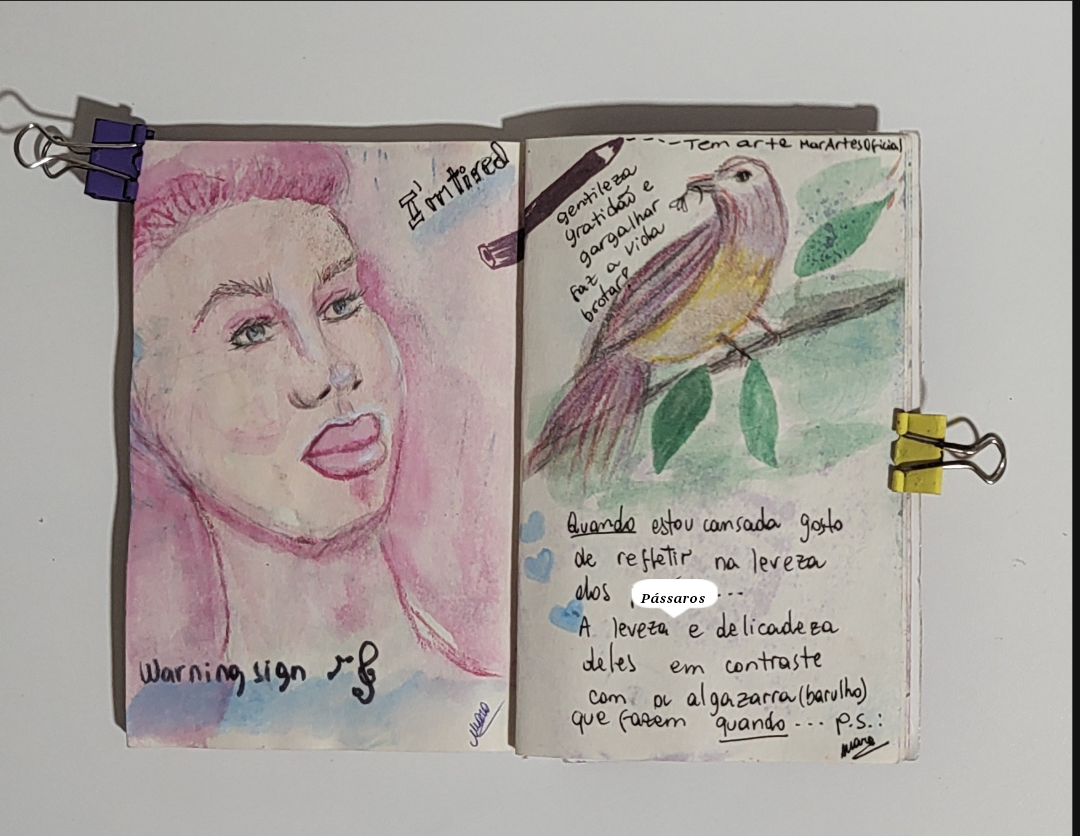 I'm tired
Warning sign
Maro
Tem arte MarArtesOficial
gentileza
gratidão e
gargalhar
faz a vida
brotar?
Quando estou cansada gosto
de refletir na leveza
dos Pássaros...
A leveza e delicadeza
deles em contraste
com a algazarra (barulho)
que fazem quando... p.s.:
Maro